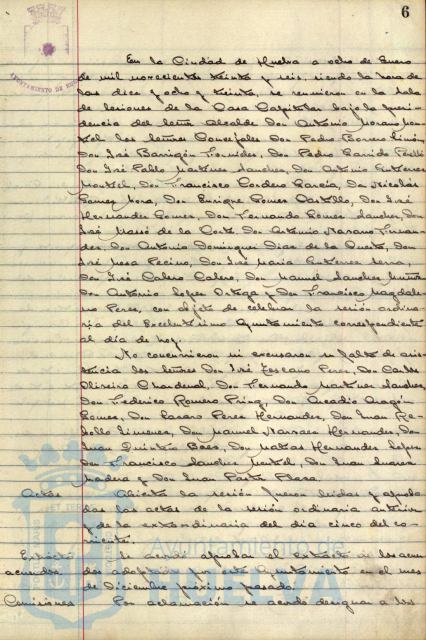 6
AYUNTAMIENTO DE
En la Ciudad de Huelva a ocho de Enero
de mil novecientos treinta y seis, siendo la hora de
las diez y ocho y treinta, se reunieron en la Sala
de Sesiones de la Casa Capitular bajo la presi-
dencia del Señor Alcalde Don Antonio Moreno
los Señores Concejales Don Pedro Borrero Limón,
Don José Barrigón Fornieles, Don Pedro Garrido
Don José Pablo Martinez Sanchez, Don Antonio Gutierrez
Don Francisco Cordero García, Don Nicolás
Gomez Mora, Don Enrique Gomez Castillo, Don José
Hernandez Gomez, Don Fernando Gomez Sanchez, Don
José de la Corte Don Antonio Naranjo Fernan-
dez, Don Antonio Dominguez Diaz de la Don
José Mesa Don José María Gutierrez
Don José Calero Calero, Don Manuel Sanchez
Don Antonio Lopez Ortega y Don Francisco Magdale-
no Perez, con objeto de celebrar la sesión ordina-
ria del Excelentisimo Ayuntamiento correspondiente
al dia de hoy.
No concurrieron ni excusaron su falta de asis-
tencia los Señores Don José Lescano Perez, Don Carlos
Oliveira Don Fernando Martinez Sanchez,
Don Federico Romero Don Arcadio Aragón
Gomez, Don Lazaro Perez Hernandez, Don Juan Re-
bollo Jimenez, Don Manuel Hernandez, Don
Juan Quintero Baez, Don Matias Hernandez Lopez
Don Francisco Sanchez Don Juan
Madera y Don Juan Plaza.
Actas Abierta la sesión fueron leidas y aproba-
das las actas de la sesión ordinaria anterior
y de la extraordinaria del dia cinco del co-
rriente.
Extracto Se acordó aprobar el extracto de los acuer-
acuerdos. dos adoptados por este Ayuntamiento en el mes
de Diciembre próximo pasado.
Comisiones Por aclamación se acordó designar a los
Ayuntamiento de
HUELVA